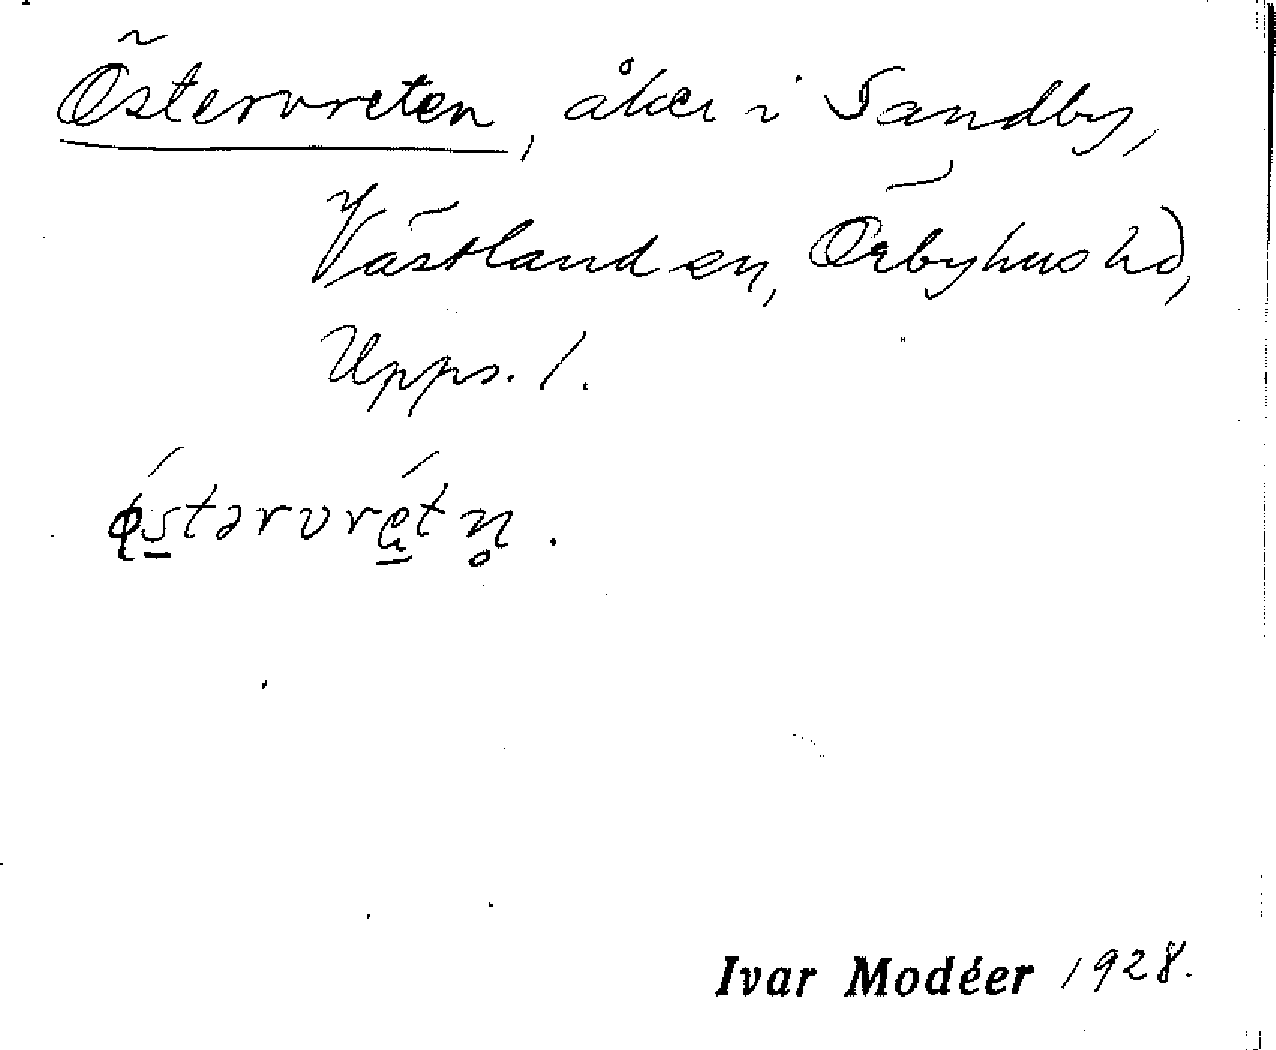 Östervreten, åker i Sandby,
Västland sn, Örbyhus hd,
Upps. l.
ǿstərvrétn̥.
Ivar Modéer 1928.